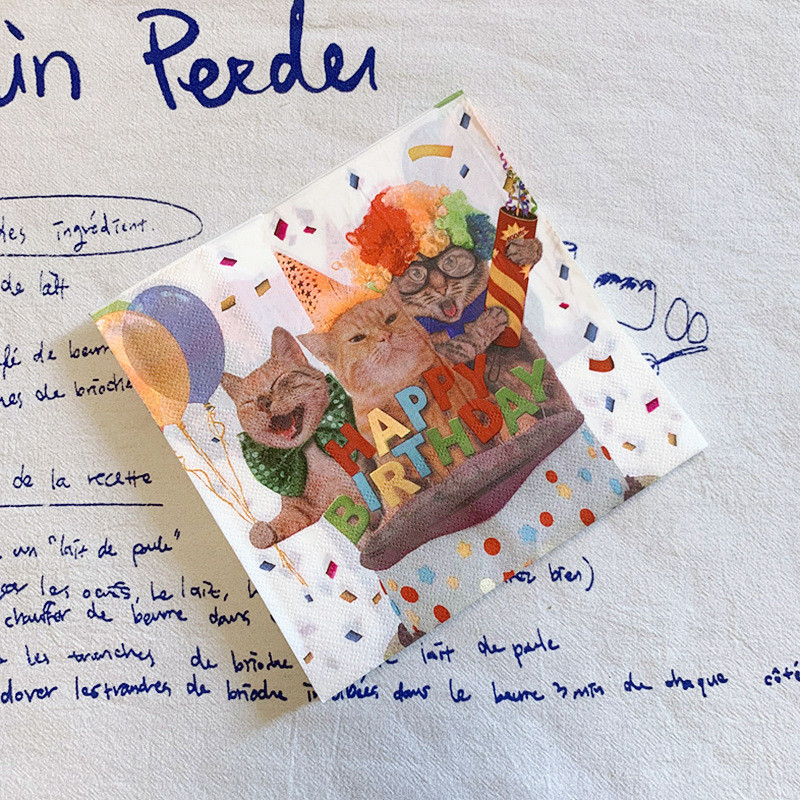 in Perdu
des ingrédient.
de lait
café de beurre
hes de brioche
HAPPY
BIRTHDAY
de la recette
un "lait de poule"
les oeufs, le lait,
bien)
chauffer de beurre dans
les tranches de brioche lait de poule
dorer les tranches de brioche imbibées dans le beurre 3 min de chaque côté